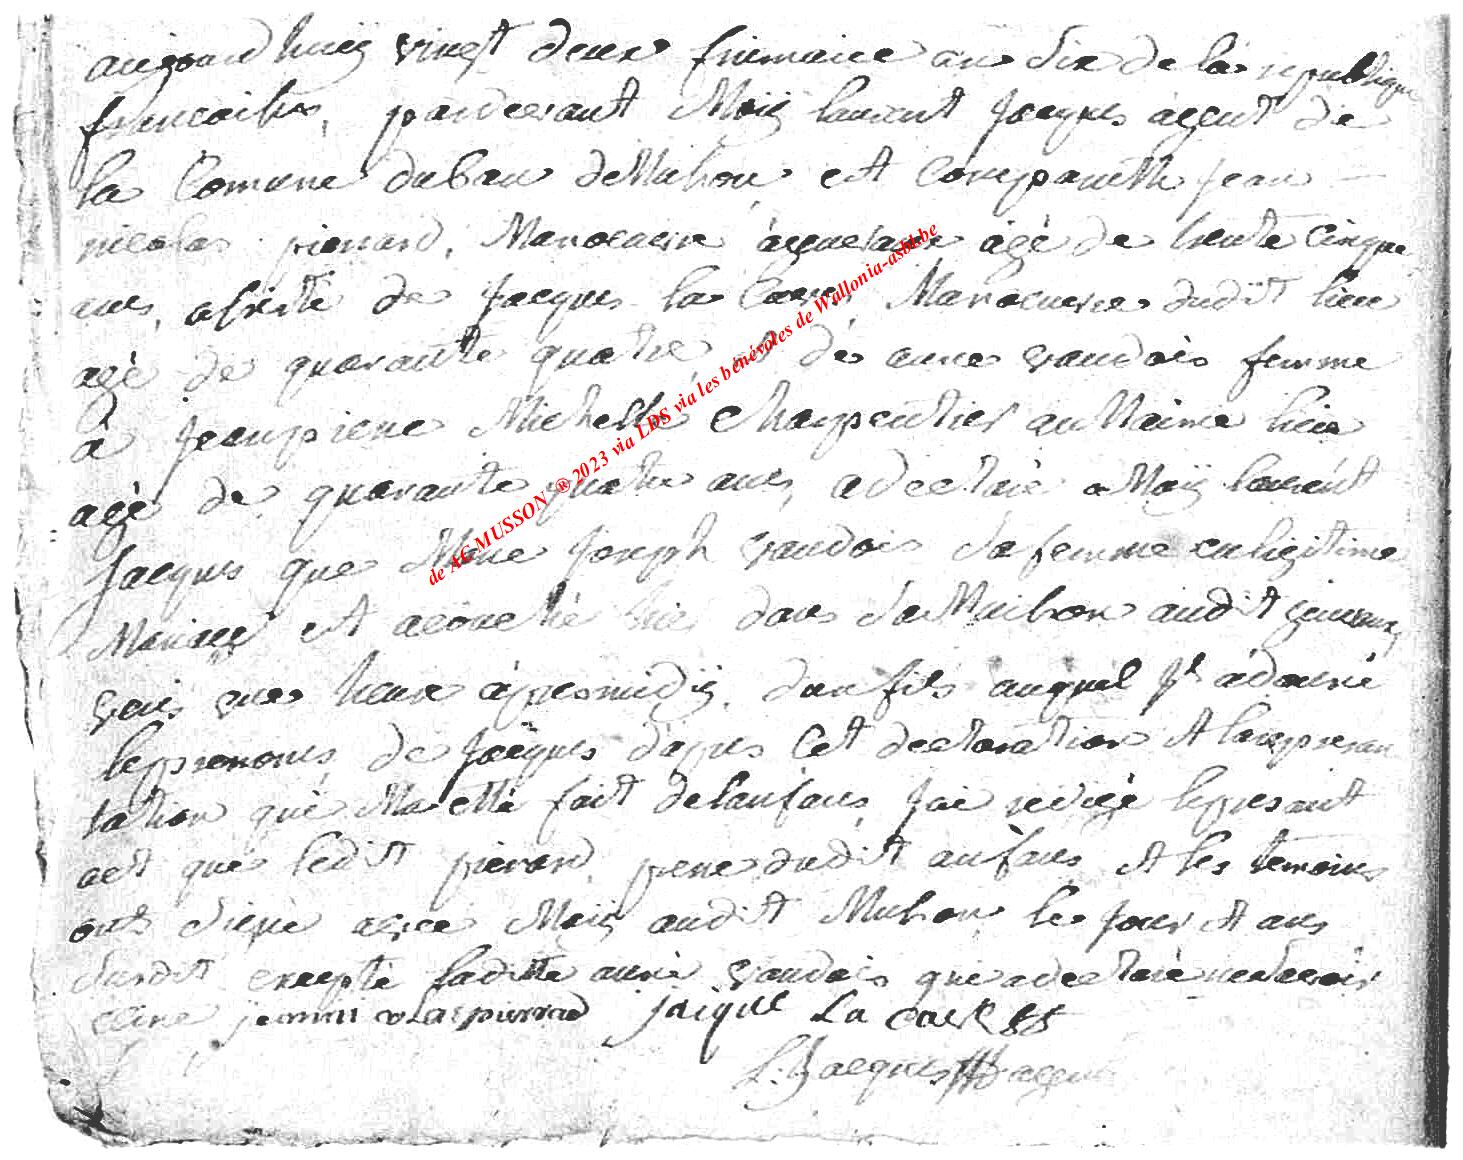 aujourd huij vinGt deux frimaire an Six de la republique
francaisse, pardevant Moij laurent Jacques agent de
la Comune du ban de Muhon est Comparuth Jean
nicolas pierrard, Manoeuvre a agé de trente Cinque
ans, assisté de Jacques la Manoeuvre dudit lieu
agé de quarante quatre et de anne vaudois femme
a Jeanpierre Michelle Charpentier au Maime lieu
agé de quarante quatre ans, a declaré a Moij laurent
Jacques que Marie Joseph vaudois Sa femme en legitime
Mariage est acouché hier dans Sa Maison audit
vers une heure apresmidij, dun fils auquel Jl a donné
le prenoms de Jacques dapres Cet declaration et la represan
tation que Ma etté fait de lanfans, Jai redigé le presant
act que ledit pierard, pere dudit anfans et les temoins
ont Signé avec Moij audit Muhon le Jour et ans
Surdit excepté laditte anne vaudois que a declaré ne Savoir
Cine jean ni colas pierrard jaique La
L: Jacques agent
de AC MUSSON ® 2023 via LDS via les bénévoles de Wallonia-asbl.be